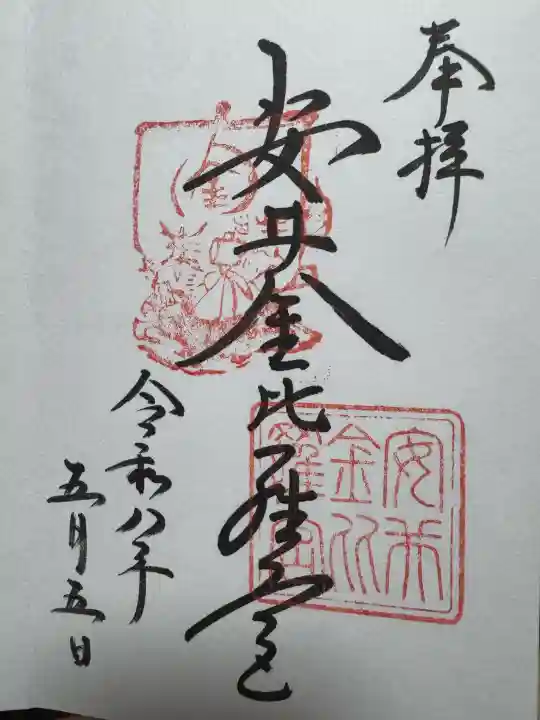 奉拝
安井金比羅宮
令和八年
五月五日
安井
金比
羅宮